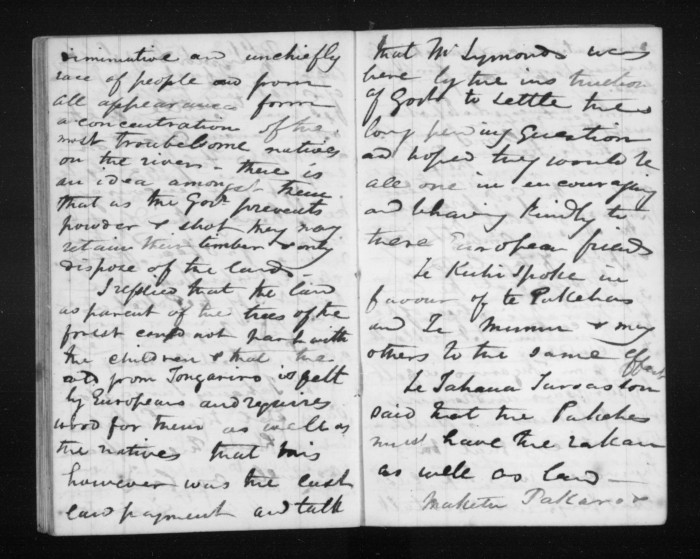 diminutive and unchiefly
race of people and from
all appearance form
a concentration of the
most troublesome natives
on the rivers - there is
an idea amongst them
that as the Govt prevents
powder & shot they may
retain their timber & only
dispose of the lands -
I replied that the land
as parent of the trees of the
forest could not part with
the children & that the
cold from Tongariro is felt
by Europeans and requires
wood for them as well as
the natives that this
however was the last
land payment and talk
that Mr Symonds was
here by the instruction
of Govt to settle these
long pending question
and hoped they would be
all one in encouraging
and behaving kindly to
there European friends
Te Kuhi spoke in
favour of te Pakehas
and Te Mumu & many
others to the same effect
Te Tahana Turoa's son
said that the Pakehas
must have the rakau
as well as land -
Maketu